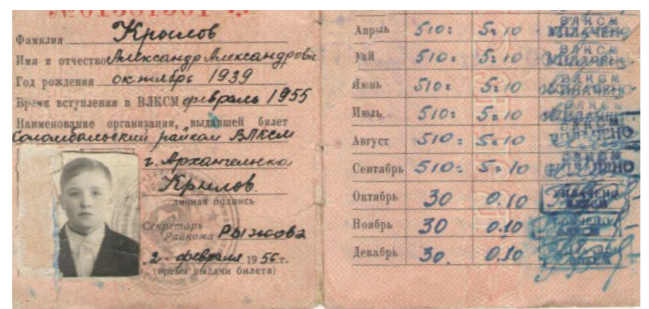 Фамилия Крылов
Имя и отчество Александр Александрович
Год рождения октябрь 1939
Время вступления в ВЛКСМ февраль 1955
Наименование организации, выдавшей билет
Соломбальский райком ВЛКСМ
г. Архангельска
Крылов.
личная подпись
Секретарь
Райкома Рыжова
2 февраля 1956 г.
(время выдачи билета)
Апрель 510= 5=10 ВЛКСМ УПЛАЧЕНО
Май 510= 5=10 ВЛКСМ УПЛАЧЕНО
Июнь 510= 5=10 ВЛКСМ УПЛАЧЕНО
Июль 510= 5=10 ВЛКСМ УПЛАЧЕНО
Август 510= 5=10 ВЛКСМ УПЛАЧЕНО
Сентябрь 510= 5=10 ВЛКСМ УПЛАЧЕНО
Октябрь 30 0.10 УПЛАЧЕНО
Ноябрь 30 0.10
Декабрь 30. 0.10